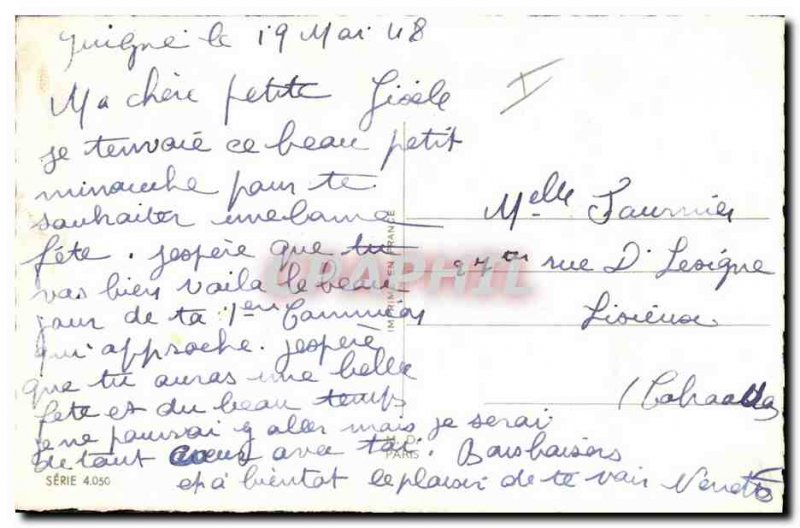 Juigné le 19 Mai 48
Ma chère petite Gisèle
je tenvoie ce beau petit
minouche pour te
souhaiter une bonne
fête. jespère que tu
vas bien voila le beau
jour de ta 1ere Commion
qui approche. jespère
que tu auras une belle
fete et du beau temps
je ne pourrai y aller mais je serai
de tout coeur avec toi. Bons baisers
et à bientot le plaisir de te voir
Melle Fournier
27ter rue D'
Lisieux
(Calvados
IMPRIMÉ EN FRANCE
M.D.
PARIS
SÉRIE 4.050
CPAPHIL